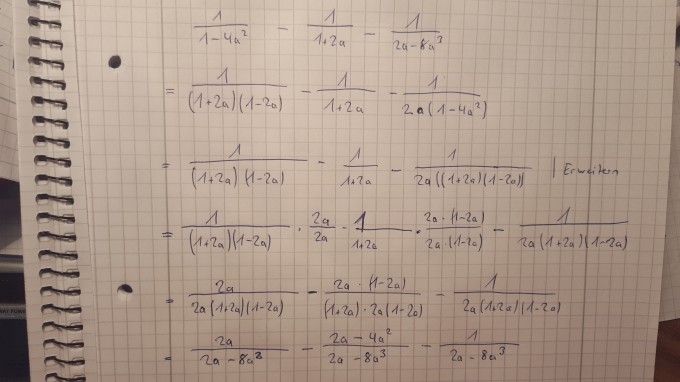 1/(1-4a²) - 1/(1+2a) - 1/(2a-8a³)
= 1/((1+2a)(1-2a)) - 1/(1+2a) - 1/(2a(1-4a²))
= 1/((1+2a)(1-2a)) - 1/(1+2a) - 1/(2a((1+2a)(1-2a))) | Erweitern
= 1/((1+2a)(1-2a)) · 2a/2a - 1/(1+2a) · (2a·(1-2a))/(2a·(1-2a)) - 1/(2a(1+2a)(1-2a))
= 2a/(2a(1+2a)(1-2a)) - (2a·(1-2a))/((1+2a)·2a(1-2a)) - 1/(2a(1+2a)(1-2a))
= 2a/(2a-8a³) - (2a-4a²)/(2a-8a³) - 1/(2a-8a³)